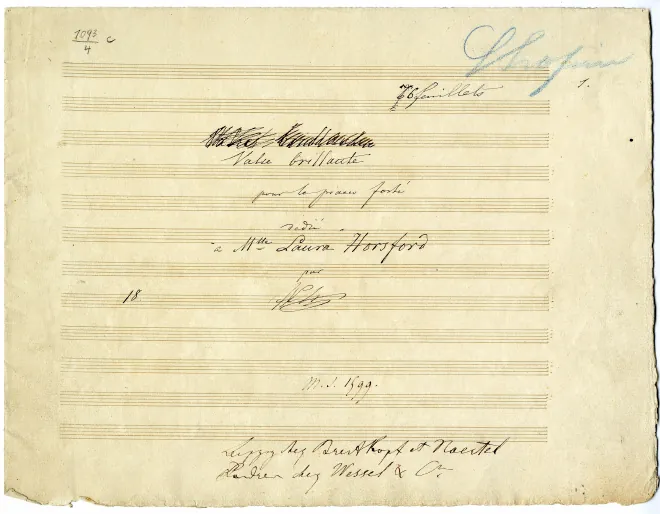 1093
4 c
Chopin
1.
6 feuillets
Valse brillante
pour le piano forté
dédiée
à Mlle Laura Horsford
par
18
M.S. 1599.
Leipzig chez Breitkopf et Haertel
Londres chez Wessel & Co